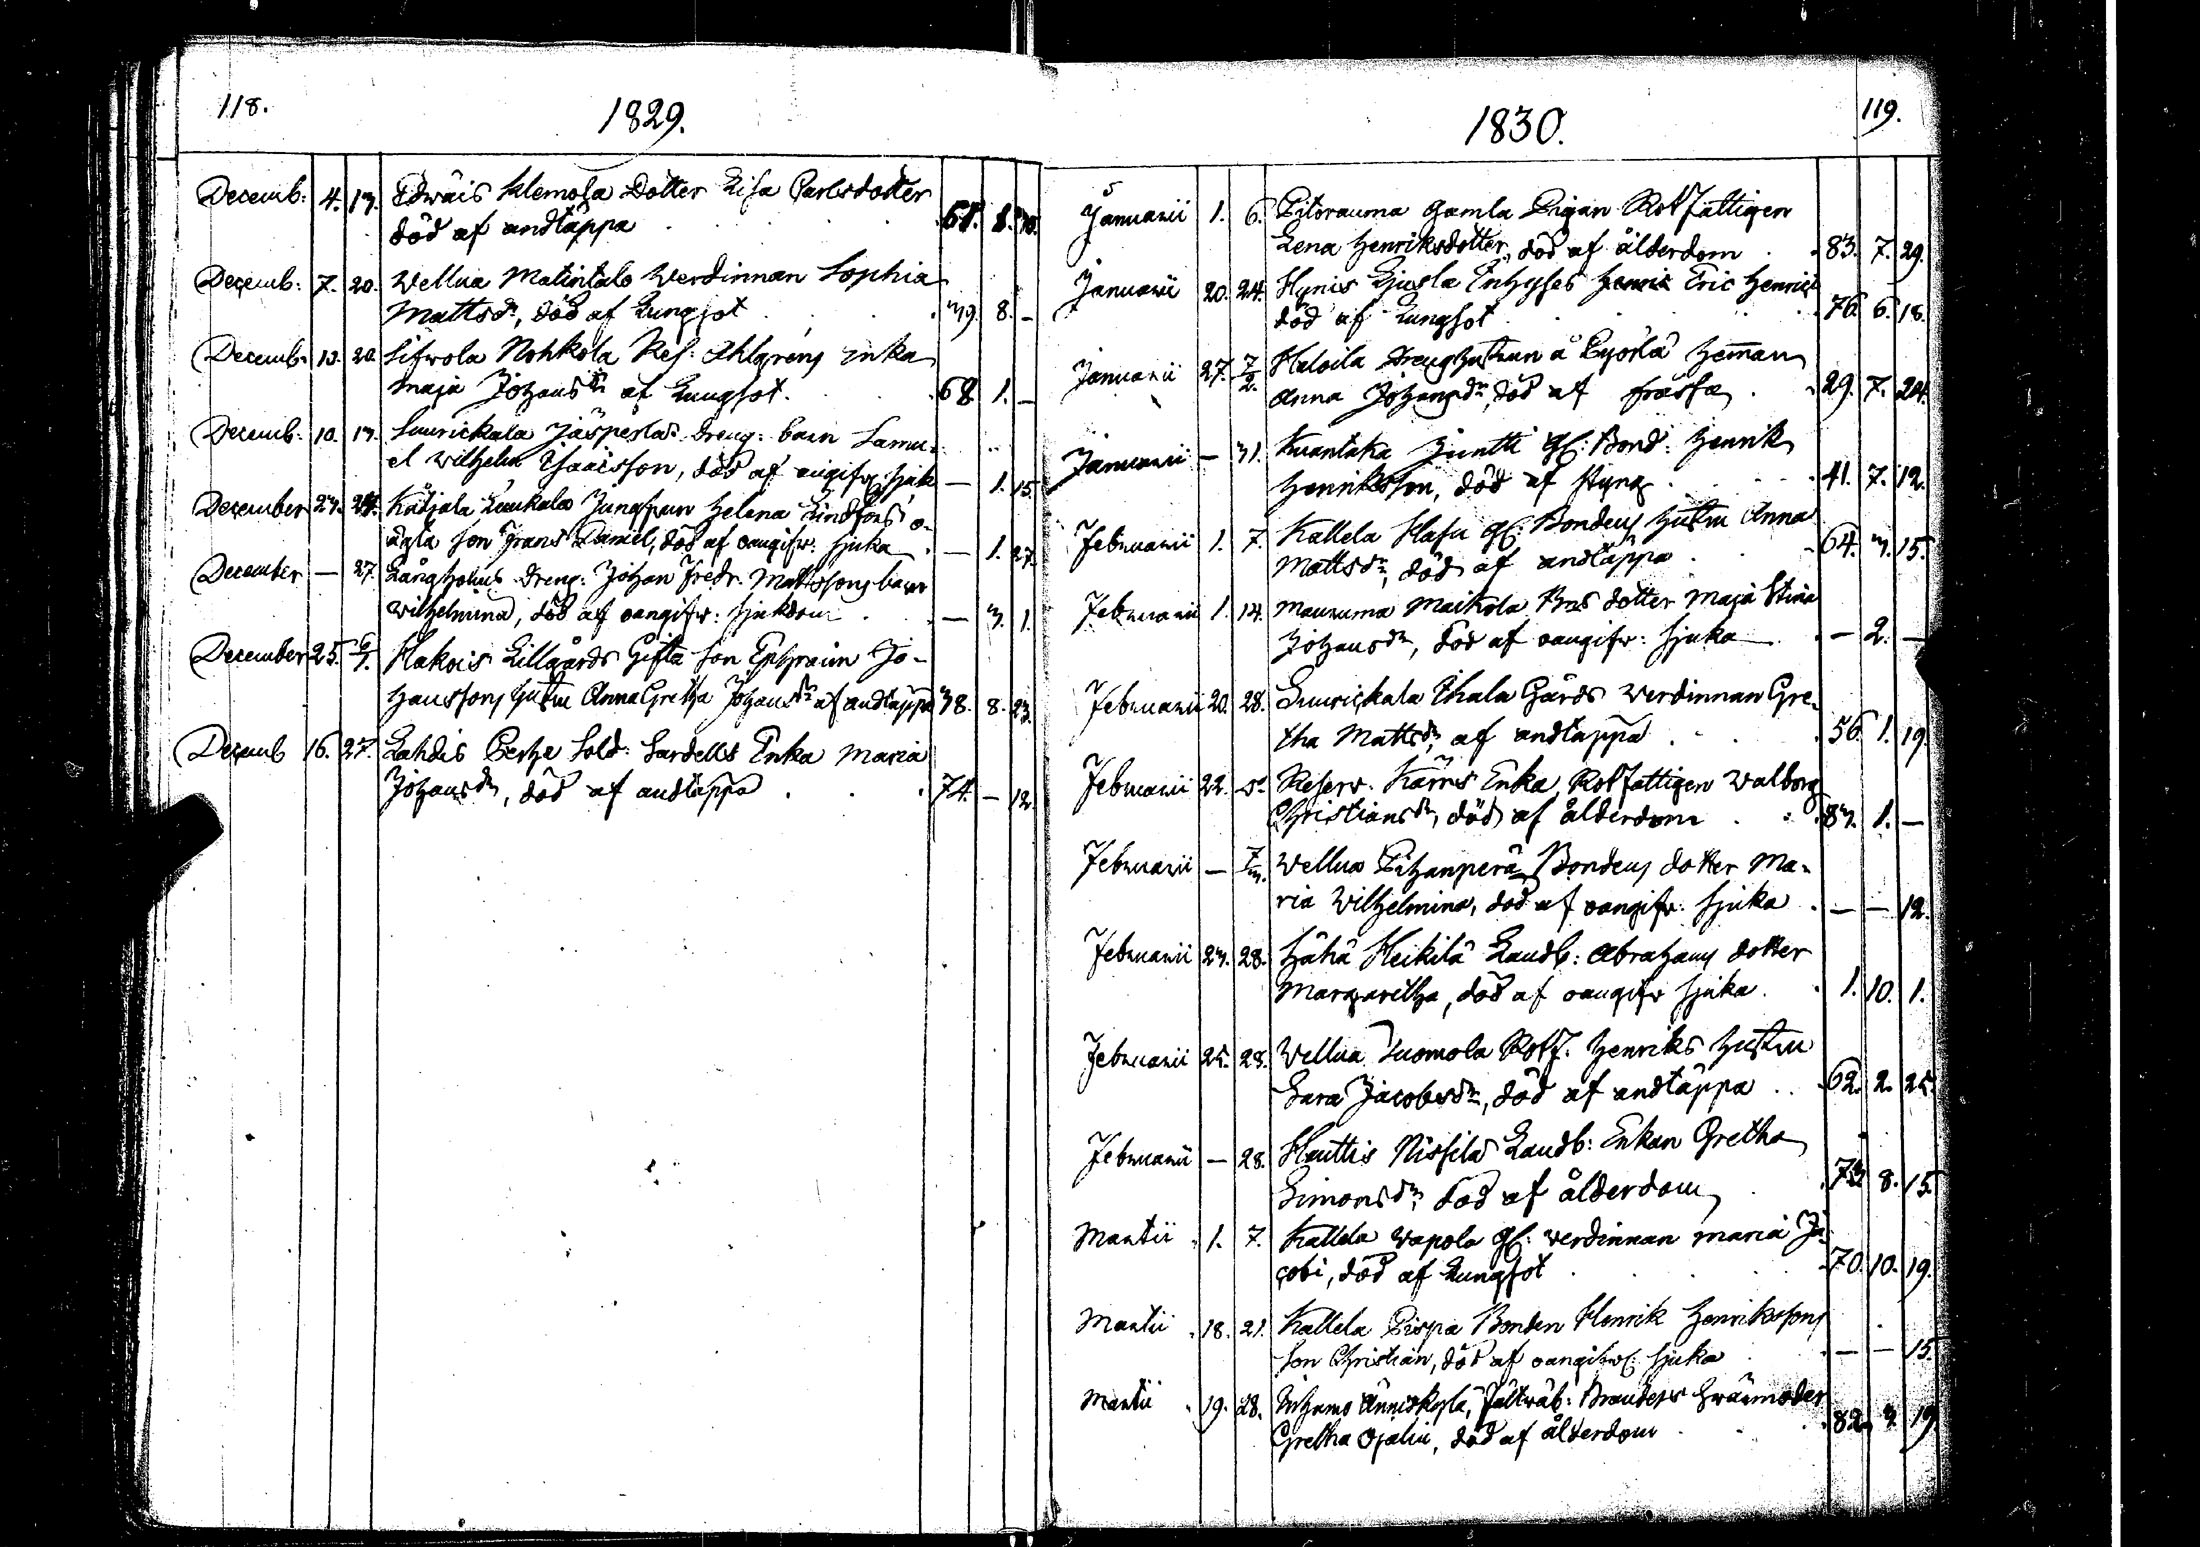 118.
1829.
Decemb: 4. 13. Edwäis Klemola Dotter Lisa Carlsdotter
död af andtäppa 61. 8. 10.
Decemb: 7. 20. Wellua Matintalo Werdinnan Sophia
Mattsdr, död af Lungsot 39. 8. —
Decemb: 13. 20. Sifwola Nohkola Res: Ahlgrens Enka
Maja Johansdr af Lungsot. 68 1. —
Decemb: 10. 13. Suurickala Jäsperlas Dreng: barn Samu-
el Wilhelm Isaacsson, död af oangifw: sjuk — 1. 15.
December 23. 24. Laukala Jungfrun Helena Lindfors o-
ägta son Frans Daniel, död af oangifw: sjuka — 1. 27.
December — 27. Långholms Dreng: Johan Fredr. Mattssons barn
Wilhelmina, död af oangifw: sjukdom — 3. 1.
December 25. 6/1. Hakois Lillgårds Gifta Son Ephraim Jo-
hanssons hustru Anna Gretha Johansdr af andtäppa 38. 8. 23.
Decemb 16. 27. Lahdis Perhe Sold: Sardells Enka Maria
Johansdr, död af andtäppa 74. — 12.
1830.
119.
Januarii 1. 6. Pitorauma gamla Pigan Rotfattigen
Lena Henriksdotter, död af ålderdom 83. 7. 29.
Januarii 20. 24. Hynis Inhyses Eric Henrics
död af Lungsot 76. 6. 18.
Januarii 27. 7/2. Haloila Drenghustrun å Pyörlä Heman
Anna Johansdr, död af frossa 29. 7. 24.
Januarii — 31. Juntti gl: Bond. Henrik
Henriksson, död af Styng 41. 7. 12.
Februarii 1. 7. Kallela Hasu gl: Bondens hustru Anna
Mattsdr, död af andtäppa 64. 3. 15.
Februarii 1. 14. Mauruma Maikola Bds dotter Maja Stina
Johansdr, död af oangifw: sjuka — 2. —
Februarii 20. 28. Suurickala Ihala Gårds Werdinnan Gre-
tha Mattsdr, af andtäppa 56. 1. 19.
Februarii 22. Reserv. Kärrs Enka, Rotfattigen Walborg
Christiansdr, död af ålderdom 83. 1. —
Februarii — 7/3. Wellua Pihanperä Bondens dotter Ma-
ria Wilhelmina, död af oangifw: sjuka — — 12.
Februarii 23. 28. Hähä Heikilä Landb: Abrahams dotter
Margaretha, död af oangifw sjuka 1. 10. 1.
Februarii 25. 28. Wellua Tuomola Rotf. Henriks hustru
Sara Jacobsdr, död af andtäppa 62. 2. 25.
Februarii — 28. Hauttis Nissilä Landb: Enkan Gretha
Simonsdr död af ålderdom 73. 8. 15.
Martii 1. 7. Kallela Wapola gl: Werdinnan Maria Ja-
cobi, död af Lungsot 70. 10. 19.
Martii 18. 21. Kallela Pispa Bonden Henrik Henrikssons
Son Christian, död af oangifw: sjuka — — 15.
Martii 19. 28. Inhamo Änniskylä, Fältwäb: Branders Swärmoder
Gretha Ojalin, död af ålderdom 82. 3. 19.